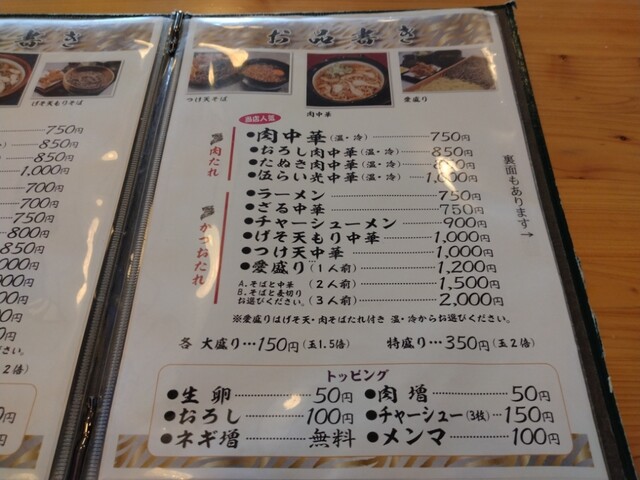 書き
げそ天もりそば
750円
850円
850円
1,000円
700円
700円
750円
800円
850円
000円
000円
000円
000円
お品書き
つけ天そば
肉中華
愛盛り
当店人気
肉たれ
●肉中華(温・冷) 750円
●おろし肉中華(温・冷) 850円
●たぬき肉中華(温・冷)
●伍らい光中華(温・冷) 1,000円
かつおたれ
●ラーメン 750円
●ざる中華 750円
●チャーシューメン 900円
●げそ天もり中華 1,000円
●つけ天中華 1,000円
●愛盛り(1人前) 1,200円
A.そばと中華 (2人前) 1,500円
B.そばと麦切り
お選びください。 (3人前) 2,000円
※愛盛りはげそ天・肉そばたれ付き 温・冷からお選びください。
裏面もあります→
各 大盛り…150円(玉1.5倍) 特盛り…350円(玉2倍)
トッピング
●生卵 50円 ●肉増 50円
●おろし 100円 ●チャーシュー(3枚) 150円
●ネギ増 無料 ●メンマ 100円